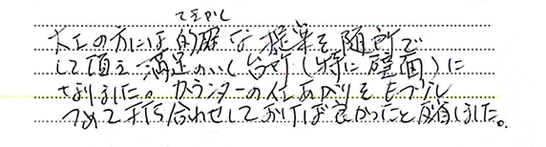 てきかく
大工の方には的確な提案を随所で
して頂き満足のいく台所(特に壁面)に
なりました。カウンターの仕上がりをもう少し
つめて打ち合わせしておけば良かったと反省しました。